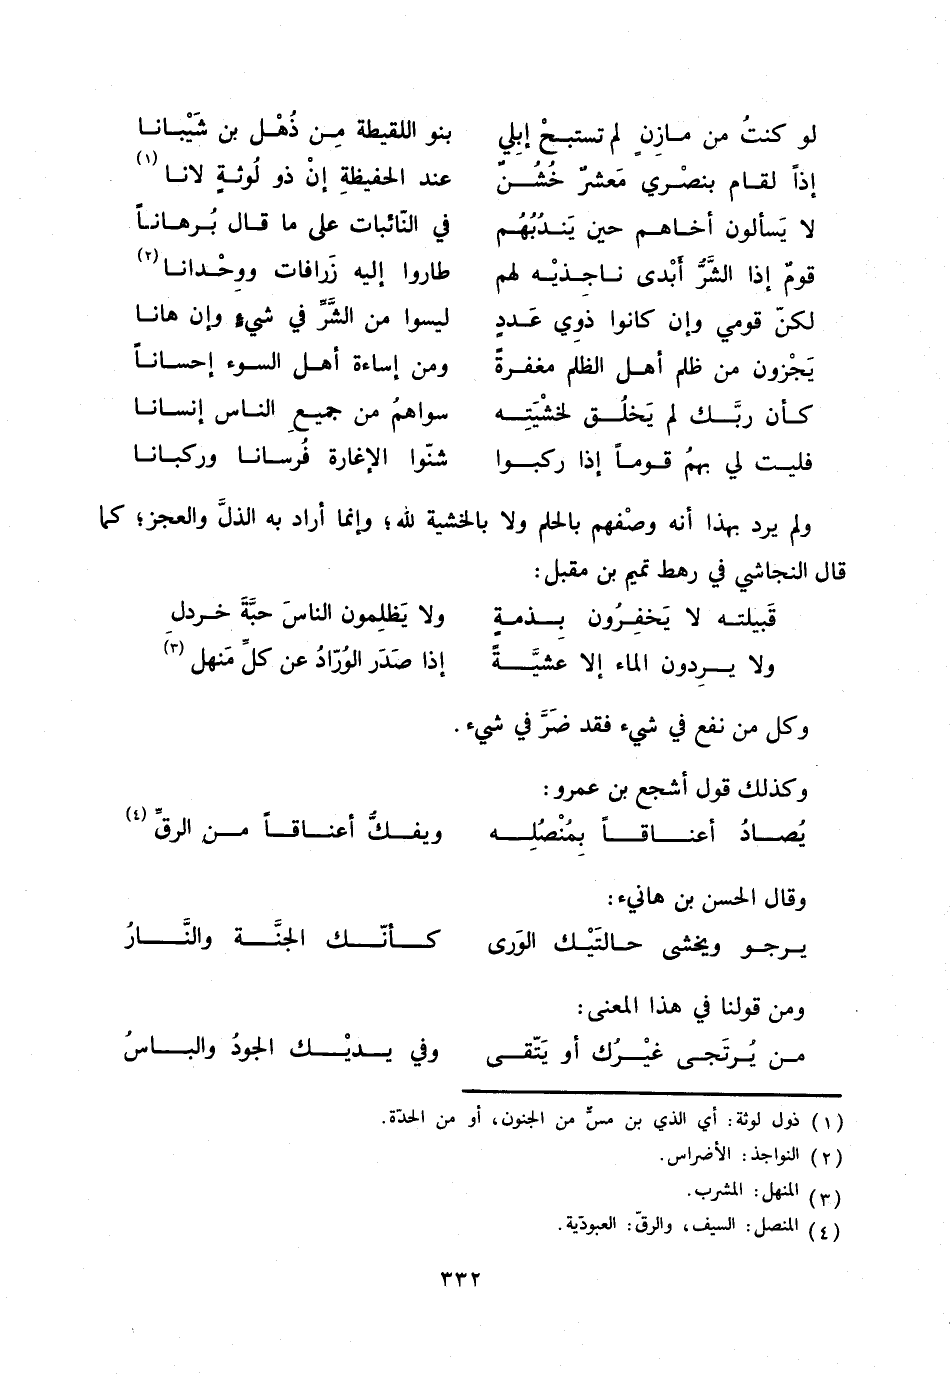 لو كنتُ من مـازنٍ لم تستبحْ إبلي بنو اللقيطة مِـن ذُهْـل بن شَيْبانـا
إذاً لقـام بنصْـري مَعشرٌ خُشُـنٌ عند الحفيظةِ إنْ ذو لُوثـةٍ لانـا (١)
لا يَسألون أخـاهـم حين يَنـدُبُهُـم في النّائبات على ما قـال بُـرهانـاً
قومٌ إذا الشَّرُّ أبْدى نـاجـذيْـه لهم طاروا إليه زَرافات ووِحْـدانـا (٢)
لكنّ قومي وإن كانوا ذوِي عَـددٍ ليسوا من الشَّرِّ في شيءٍ وإن هانـا
يَجْزون من ظلم أهـل الظلم مغفـرةً ومن إساءة أهـل السـوء إحسـانـاً
كـأن ربَّـك لم يَخلُـق لخشْيَتِـه سواهمُ من جميـعِ النـاس إنسـانـا
فليـت لي بهمُ قـومـاً إذا ركبـوا شنّوا الإغارة فُرسـانـا وركبـانـا
ولم يرد بهذا أنه وصْفهم بالحلم ولا بالخشية لله؛ وإنما أراد به الذلَّ والعجز؛ كما
قال النجاشي في رهط تميم بن مقبل:
قَبيلتـه لا يَخفِـرُون بـذمـةٍ ولا يَظلِمون الناسَ حبَّةَ خـردلِ
ولا يـرِدون الماء إلا عشيَّـةً إذا صَدَر الوُرّادُ عن كلِّ مَنهل (٣)
وكل من نفع في شيء فقد ضَرَّ في شيء.
وكذلك قول أشجع بن عمرو:
يُصـادُ أعنـاقـاً بِمُنْصُلِـه ويفـكُّ أعنـاقـاً مـن الرقِّ (٤)
وقال الحسن بن هانيء:
يـرجـو ويخشى حـالتَيْـك الوَرى كـأنّـك الجنَّـة والنَّـارُ
ومن قولنا في هذا المعنى:
مـن يُـرتَجـى غيْـرُك أو يَتّقـى وفي يـديْـك الجودُ والبـاسُ
(١) ذول لوثة: أي الذي بن مسٌّ من الجنون، أو من الحدّة.
(٢) النواجذ: الأضراس.
(٣) المنهل: المشرب.
(٤) المنصل: السيف، والرقّ: العبوديّة.
٣٣٢